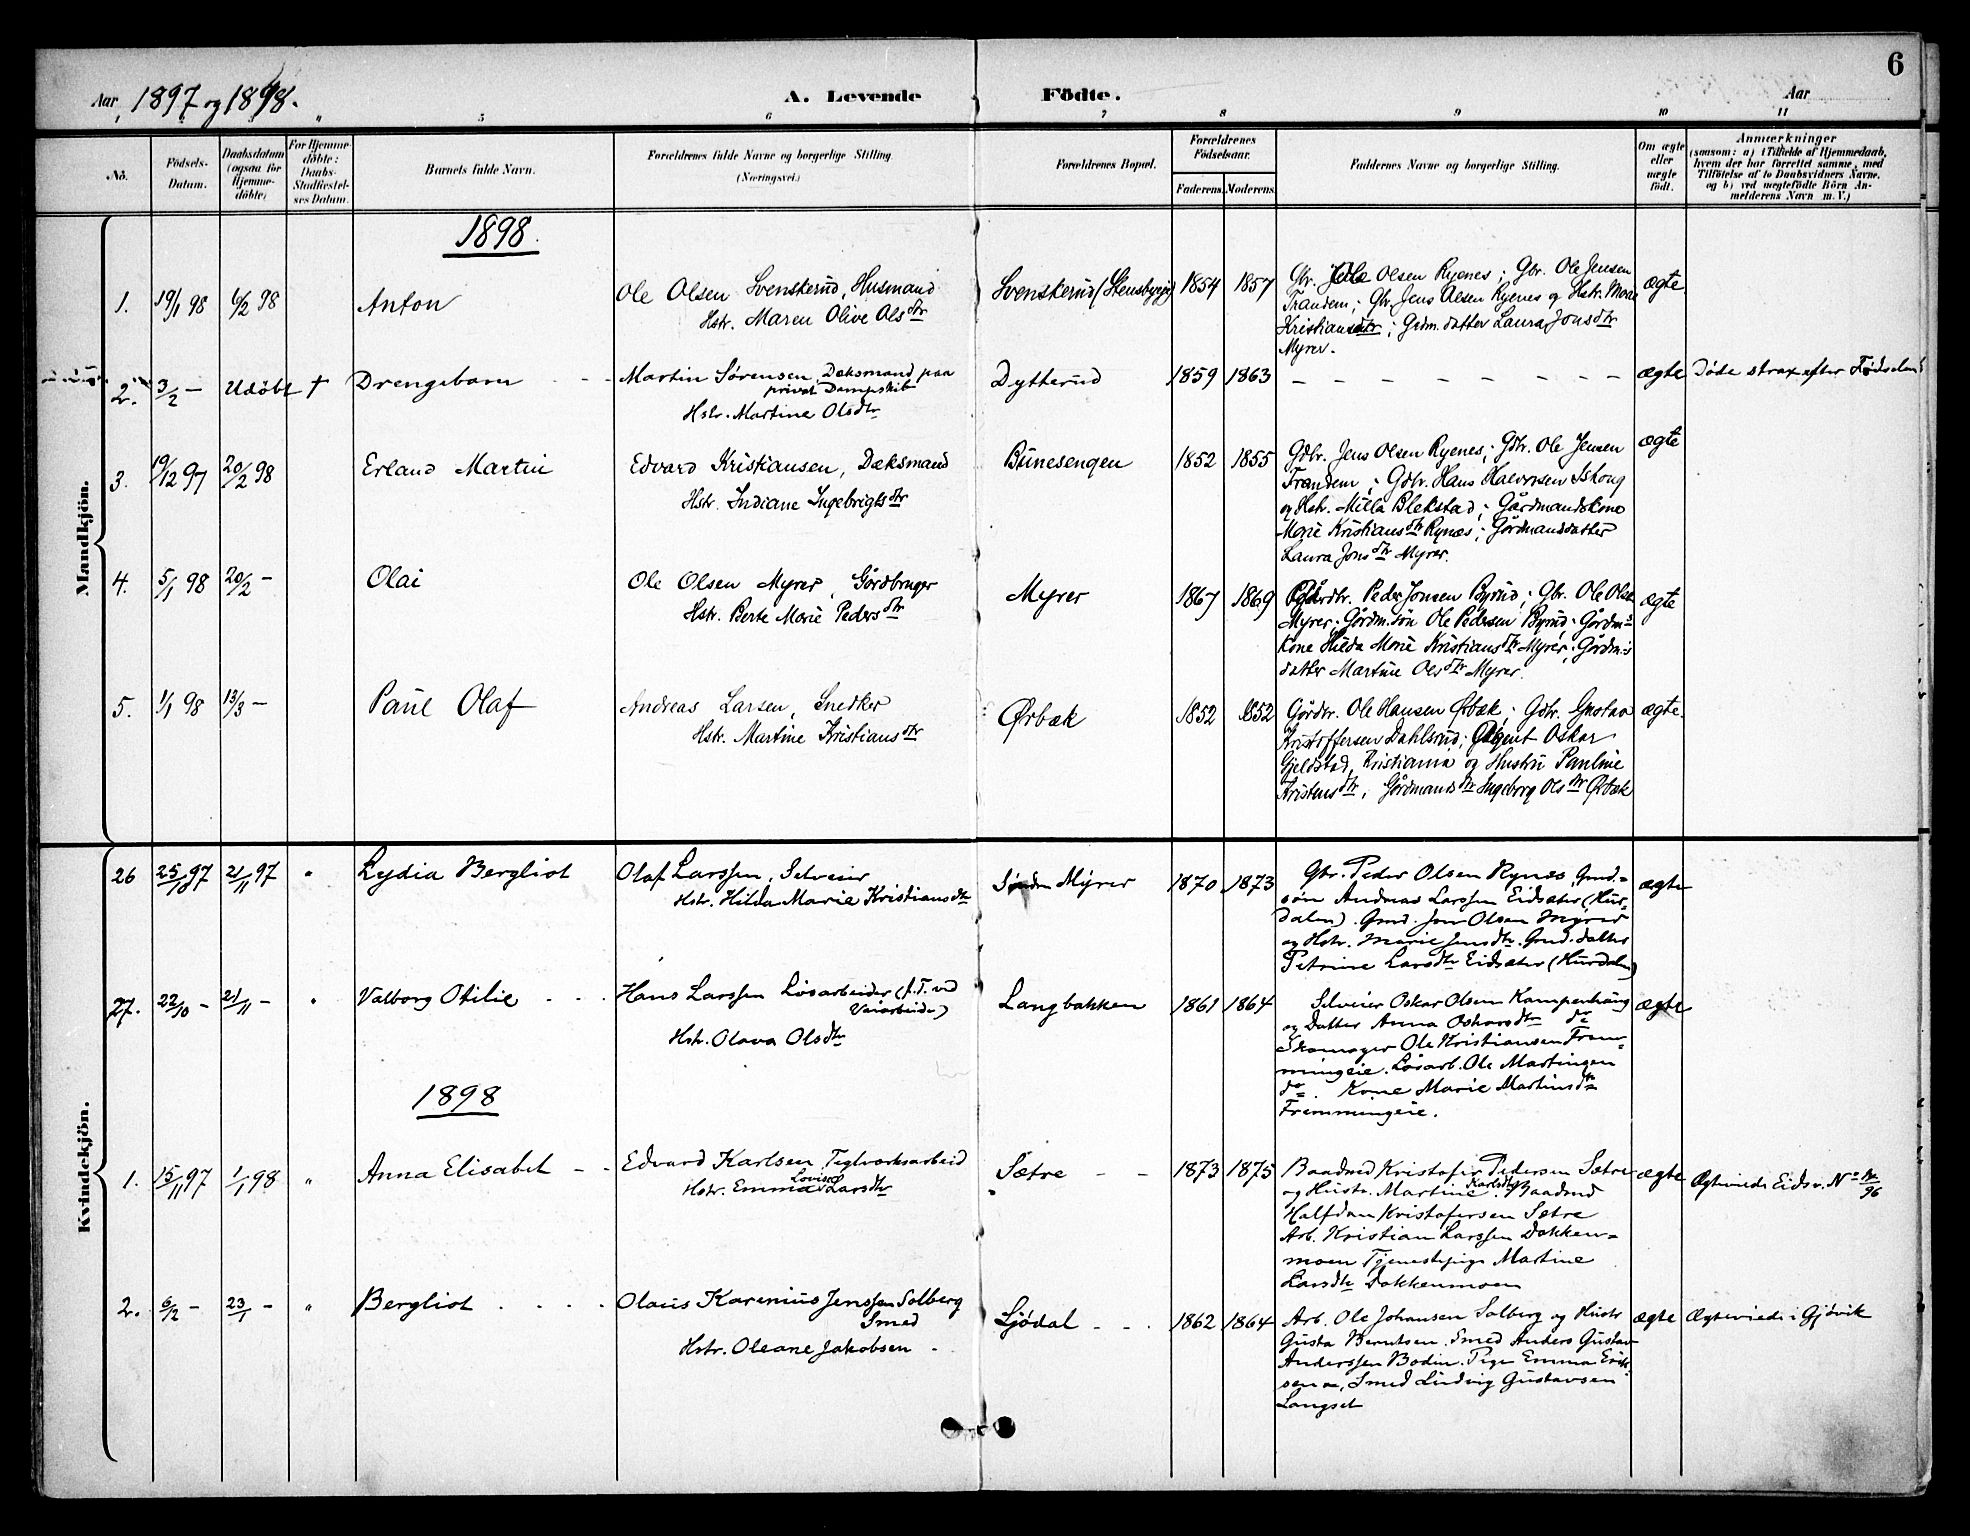 6
Aar 1897 og 1898.
A. Levende Födte.
Aar
5 6 7 8 9 10 11
No.
Födsels-Datum.
Daabsdatum (ogsaa for Hjemme-döbte)
For Hjemme-döbte: Daabs-Stadfæstel-ses Datum.
Barnets fulde Navn.
Forældrenes fulde Navne og borgerlige Stilling.
(Næringsvei.)
Forældrenes Bopæl.
Forældrenes Födselsaar.
Faderens. Moderens.
Faddernes Navne og borgerlige Stilling.
Om ægte eller uægte født.
Anmærkninger
(saasom: a) i Tilfælde af Hjemmedaab,
hvem der har forrettet samme, med
Tilföielse af to Daabsvidners Navne,
og b) ved uægtefödte Börn An-
melderens Navn m. V.)
Mandkjön.
1898.
1. 19/1 98 6/2 98 Anton
Ole Olsen Svenskerud, Husmand
Hstr. Maren Olive Olsdtr
Svenskerud (Stensbygd) 1854 1857
Gbr. Olsen Ryenes; Gbr. Ole Jensen
Trandem; Gbr. Jens Olsen Ryenes og Hstr. Marie
Kristiansdtr; Grdm.datter Laura Jonsdtr
Myrer.
ægte.
2. 3/2 — Udöbt † Drengebarn
Martin Sørensen, Dæksmand paa
privat Dampskib
Hstr. Martine Olsdtr
Dytterud 1859 1863 — — — — — — — ægte Döde strax efter Födselen
3. 19/12 97 20/2 98 Erland Martin
Edvard Kristiansen, Dæksmand
Hstr. Indiane Ingebrigtsdtr
Bunesengen 1852 1855
Gdbr. Jens Olsen Ryenes; Gdbr. Ole Jensen
Trandem; Gdbr. Hans Halvorsen
og Hstr. Milla Blekstad; Gårdmandskone
Marie Kristiansdtr Rynæs; Gårdmandsdatter
Laura Jonsdtr Myrer.
ægte
4. 5/1 98 20/2 — Olai
Ole Olsen Myrer, Gårdbruger
Hstr. Berte Marie Pedersdtr
Myrer 1867 1869
Gårdbr. Peder Jonsen Byrud; Gbr. Ole Olsen
Myrer; Gårdm.sön Ole Pedersen Byrud; Gårdm:
kone Hilda Marie Kristiansdtr Myrer; Gårdm:s
datter Martine Olsdtr Myrer.
ægte
5. 1/1 98 13/3 — Paul Olaf
Andreas Larsen, Snedker
Hstr. Martine Kristiansdtr
Ørbæk 1852 1852
Gårdbr. Ole Hansen Ørbæk; Gdbr. Gustav
Kristoffersen Dahlsrud; Agent Oskar
Gjeldstad, Kristiania og Hustru Pauline
Kristensdtr, Gårdmandsdtr Ingeborg Olsdtr Ørbæk
ægte.
Kvindekjön.
26 25/10 97 21/11 97 " Lydia Bergliot
Olaf Larssen, Selveier
Hstr. Hilda Marie Kristiansdtr
Søndre Myrer 1870 1873
Gbr. Peder Olsen Rynæs, Grmd.=
søn Andreas Larssen Eidsæter (Hur-
dalen). Grmd. Jon Olsen Myrer
og Hstr. Marie Jensdtr. Grmd.datter
Petrine Larsdtr Eidsæter (Hurdalen)
ægte
27. 22/10 — 21/11 — " Valborg Otilie
Hans Larssen Løsarbeider (f.T. ved
Veiarbeide)
Hstr. Olava Olsdtr
Langbakken 1861 1864
Selveier Oskar Olsen Kampenhaug
og Datter Anna Oskarsdtr do
Skomager Ole Kristiansen Frem-
mingeie. Løsarb. Ole Martinsen
do. Kone Marie Martinsdtr
Fremmingeie.
ægte
1898
1. 15/11 97 1/1 98 " Anna Elisabet
Edvard Karlsen, Teglværksarbeid
Hstr. Emma Lovise Larsdtr
Sætre 1873 1875
Baadmd Kristofer Pedersen Sætre
og Hustr. Martine Karlsdtr, Baadmd
Halfdan Kristofersen Sætre
Arb. Kristian Larssen Dokken=
moen Tjenestepige Martine
Larsdtr Dokkenmoen
ægte Ægteviede Eidsv. No
2. 6/12 — 23/1 — " Bergliot
Olaus Karenius Jenssen Solberg
Smed
Hstr. Oleane Jakobsen
Sjödal 1862 1864
Arb. Ole Johansen Solberg og Hustr
Gusta Berntsen. Smed Anders Gustav
Anderssen Bodin. Pige Emma Erik-
sen , Smed Ludvig Gustavsen
Langset
ægte Ægteviede i Gjövik